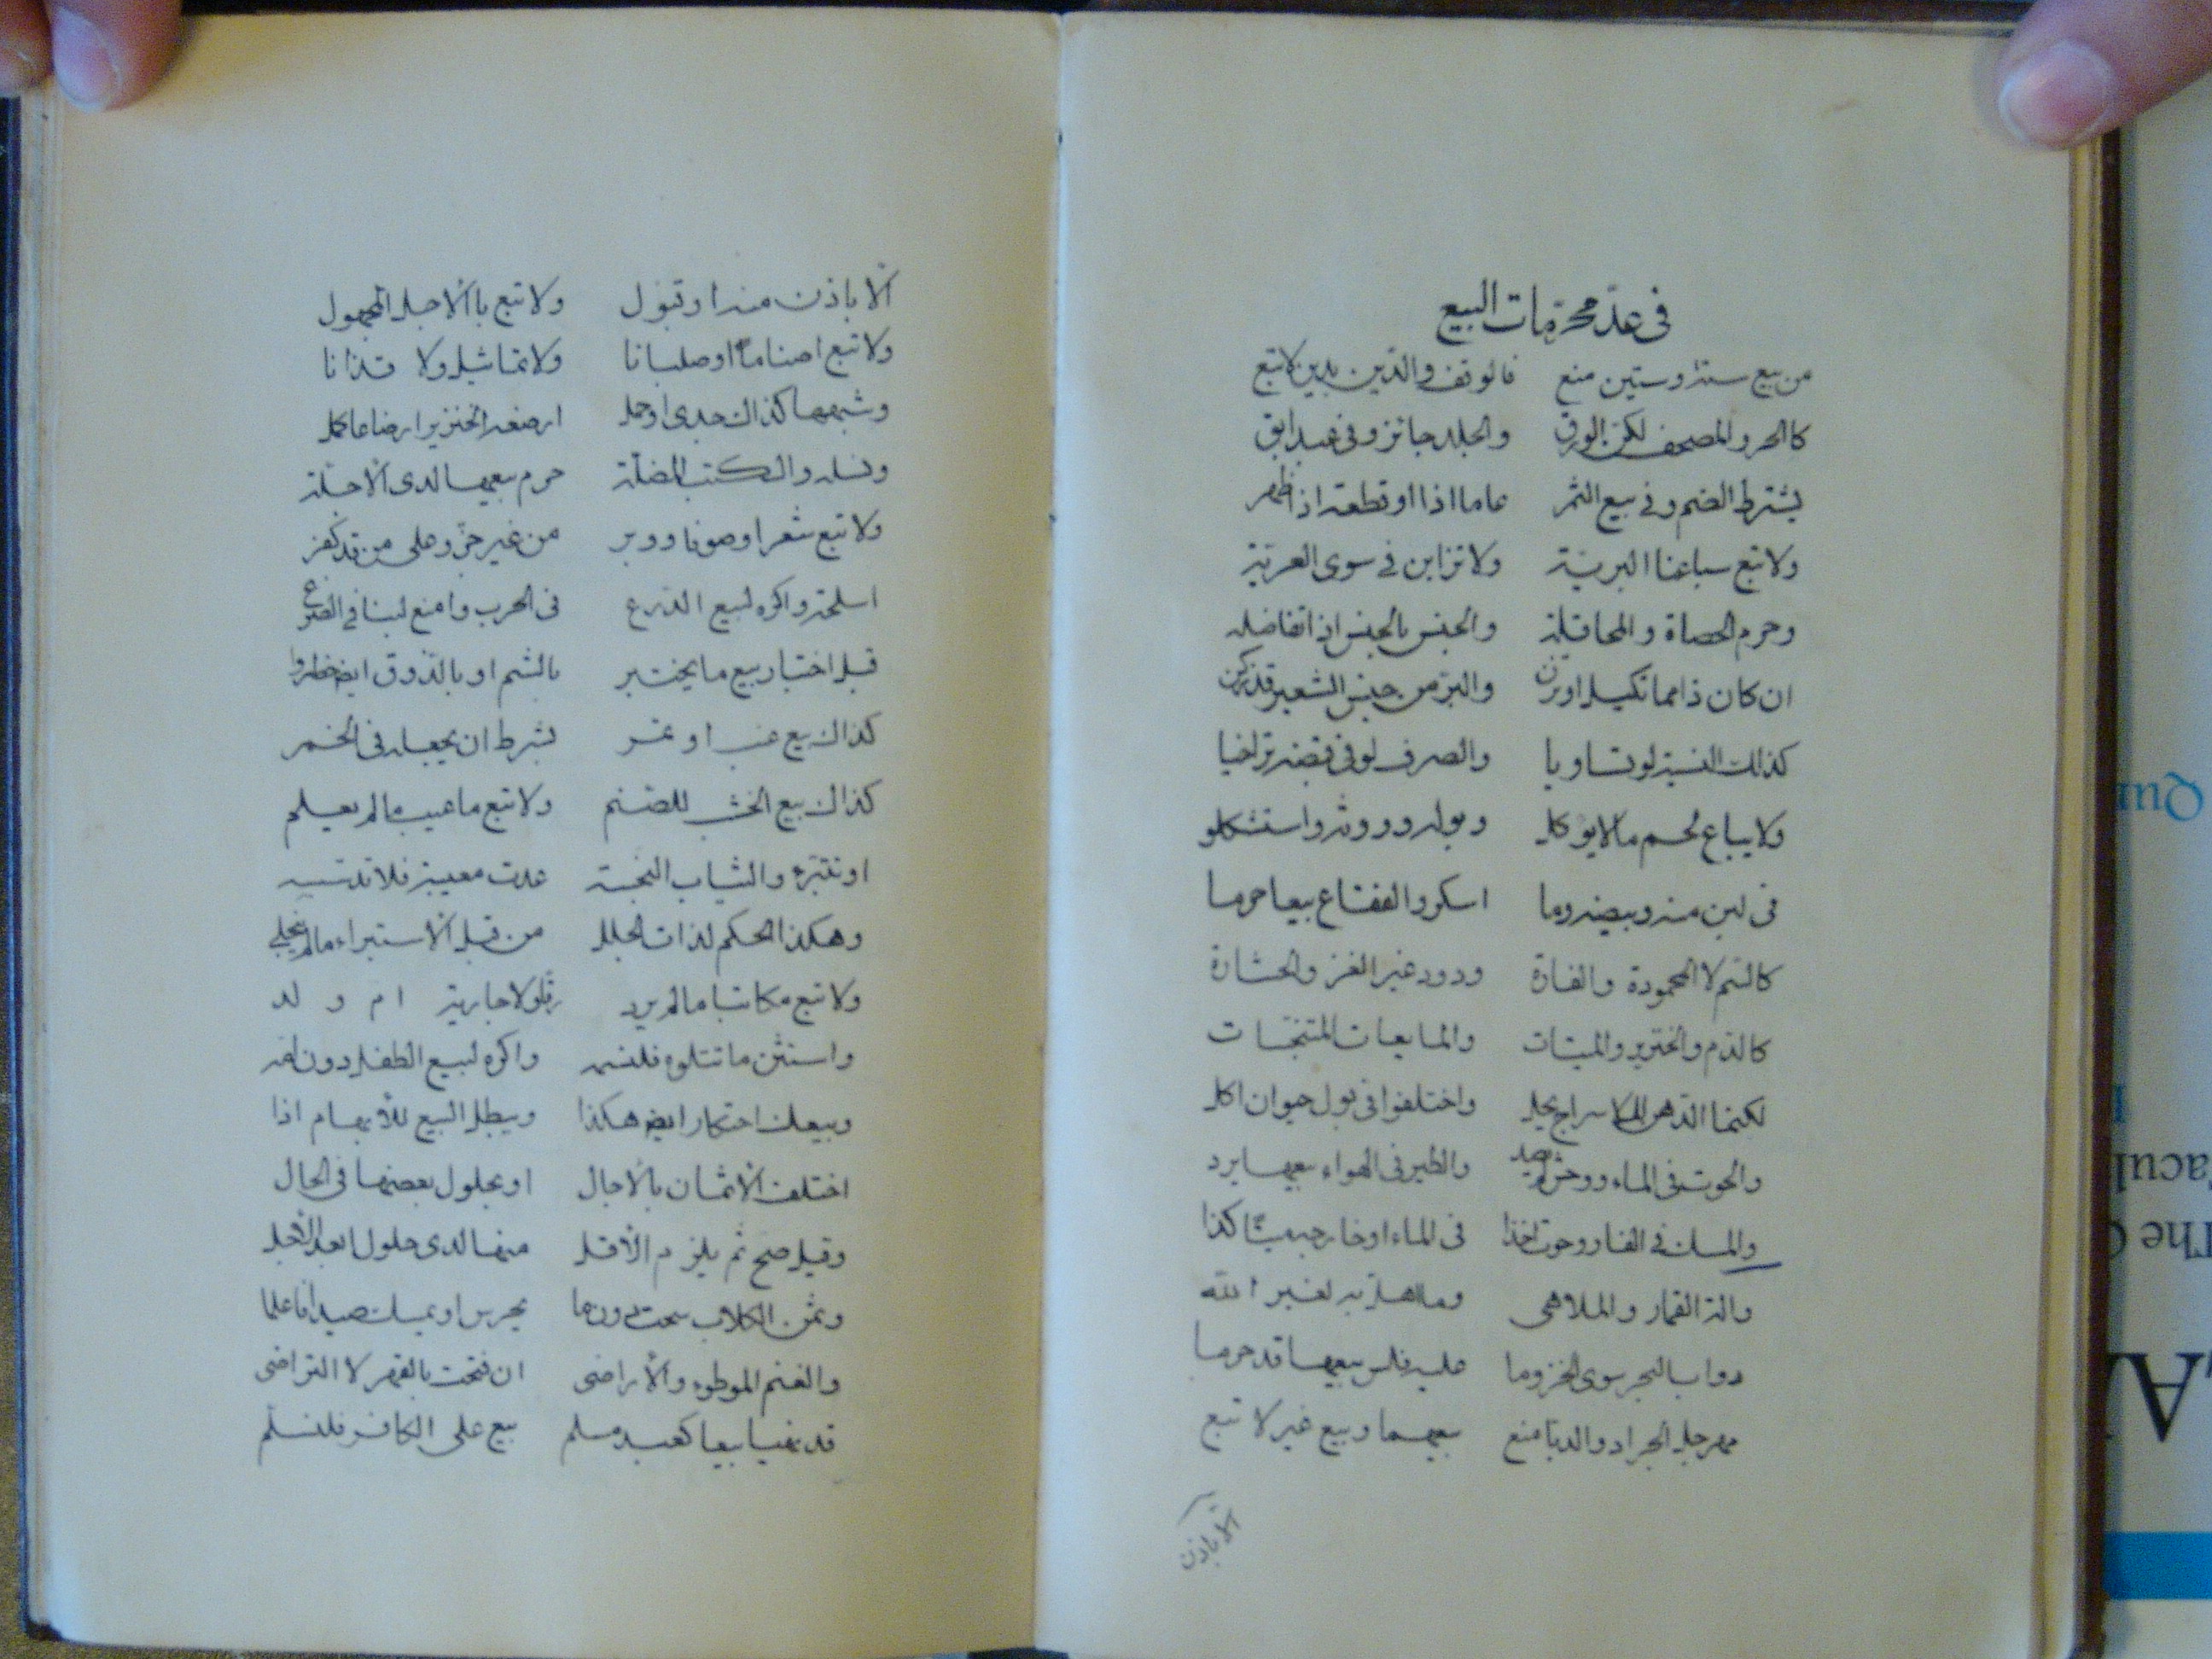 فى عدّ محرّمات البيع
من بيع ستة وستين منع فالوقف والدّين بدين لا تبع
كالحر والمصحف لكن الورق والجلد جائز وفى عبد ابق
يشترط الضم وفى بيع الثمر عاما اذا او قطعة اذا ظهر
ولا تبع سباعنا البريّة ولا تزابن فى سوى العريّة
وحرم الحصاة والمحاقلة والجنس بالجنس اذا تفاضله
ان كان ذا مما تكيل او تزن والبرّ من جنس الشعير قد زكن
كذلك النسية لو تساويا والصرف لو فى قبضه تراخيا
ولا يباع لحم ما لا يؤكل وبوله وروثه واستشكلو
فى لبن منه وبيضه وما اسكر والفقاع بيعا حرما
كالسّم لا المحمودة والفارة ودود غير القز والحشارة
كالدّم والخنزير والميتات والمايعات المتنجّسات
لكنما الدّهن للاسراج يحل واختلفوا فى بول حيوان اكل
والحوت فى الماء ووحش لم يصد والطير فى الهواء بيعها يرد
والمسك فى الفار وحوت اخذا فى الماء او خارجه ميتا كذا
والة القمار والملاهى وما اهل به لغير الله
دواب البحر سوى الخز وما عليه فلس بيعها قد حرما
الجراد والدبا منع بيعهما وبيع غير لا تبع
الا باذن
الا باذن منه او قبول ولا تبع بالاجل المجهول
ولا تبع اصناما او صلبانا ولا تماثيل ولا
وشبهها كذاك جدى او حمل ارضعه الخنزير ارضاعا كمل
ونسله والكتب المضلّة حرم بيعها لدى الاجلّة
ولا تبع شعرا وصوفا ووبر من غير جزّ وعلى من قد كفر
اسلحة واكره لبيع الدّرع فى الحرب وامنع لبنا فى الضرع
قبل اختبار بيع ما يختبر بالشم او بالذّوق ايضا حظروا
كذاك بيع عنب او تمر بشرط ان يجعله فى الخمر
كذاك بيع الخشب للصّنم ولا تبع ما عيب ما لم يعلم
والثياب النجسة عدت معيبة فلا تدنسه
وهكذا الحكم لذات الحلل من قبل الاستبراء ما لم ينجلي
ولا تبع مكاتبا ما لم يرد رقا ولا جارية ام ولد
واستثن ما تتلوه فلتنبه واكره لبيع الطفل دون امه
وبيعك احتكارا ايضا هكذا ويبطل البيع للابهام اذا
اختلف الاثمان بالاجال او بحلول بعضها فى الحال
وقيل صح ثم يلزم الاقل منها لدى حلول ابعد الاجل
وثمن الكلاب سحت دون ما يحرس او يمسك صيدا فاعلما
والغنم الموطوء والاراضى ان فتحت بالقهر لا التراضى
بيعا كعبد مسلم بيع على الكافر فلتسلّم